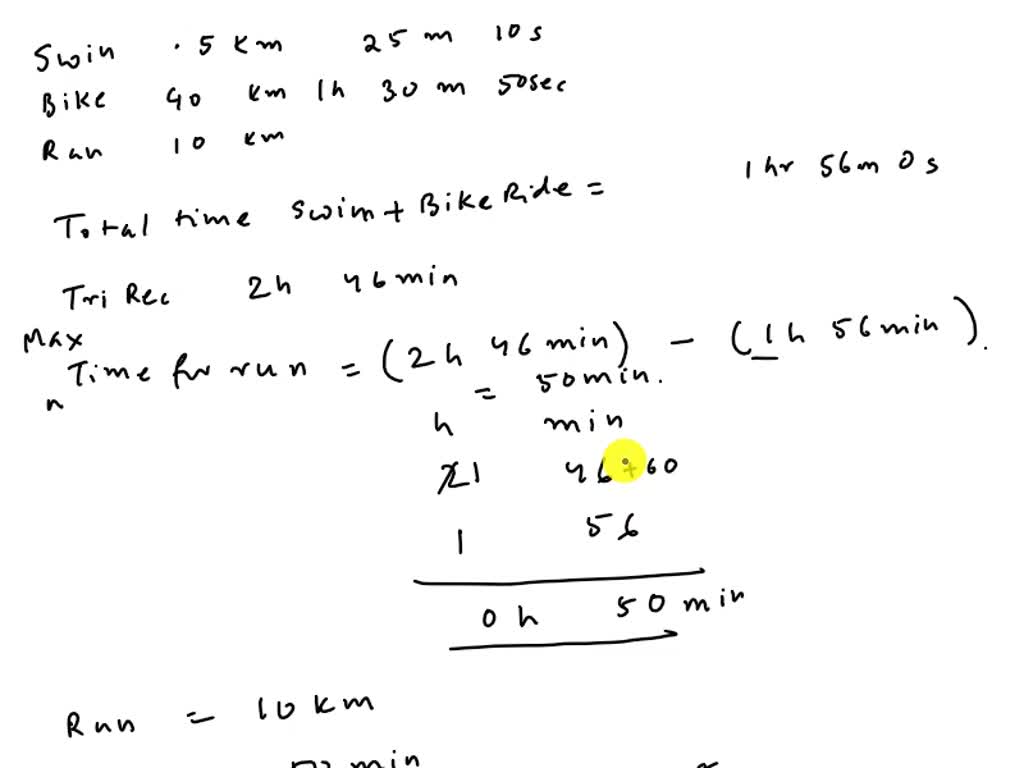 Swin .5 Km 25 m 10s
Bike 40 km 1h 30 m 50sec
Ran 10 km
Total time swim + Bike Ride = 1 hr 56m 0s
Tri Rec 2h 46 min
Max
Time for run = (2h 46 min) - (1h 56 min).
n
= 50 min.
h min
2 1 46+60
1 56
0 h 50 min
Run = 10 Km
min